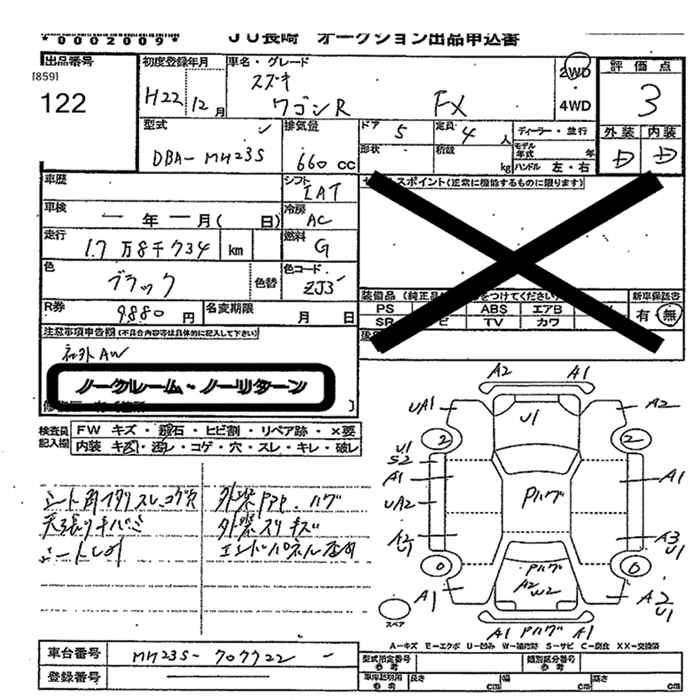 *0002009* JU長崎 オークション出品申込書
出品番号 初度登録年月 車名・グレード 評価点
[859]
122
H22 12月
スズキ
ワゴンR FX
2WD
4WD
3
外装 内装
D D
型式 排気量 ドア 5 定員 4人 ディーラー・並行
DBA-MH23S 660cc 形状 積載 kg モデル年式 年
ハンドル 左・右
車歴 シフト IAT
セールスポイント(正常に機能するものに限ります)
車検 ー年ー月( 日) 冷房 AC
走行 17万8千734 km 燃料 G
色 ブラック 色替 色コード ZJ3
装備品 新車保証書
PS ABS エアB 有・無
SR TV カワ
R券 9880円 名変期限 月 日
注意事項申告欄(不具合内容等は具体的に記入して下さい)
社外AW
ノークレーム・ノーリターン
検査員記入欄
FW キズ・飛石・ヒビ割・リペア跡・×要
内装 キズ・汚レ・コゲ・穴・スレ・キレ・破レ
天張りキバミ
外装スリキズ
A2 A1
UA1 U1 A2
2 2
U1
S2
A1 Pハゲ A1
UA2
A2
U1
A3
U1
0 0
Pハゲ
A2
W2
A1 A2
U1
スペア
A1 Pハゲ A1
A-キズ E-エクボ U-凹み W-補修跡 S-サビ C-腐食 XX-交換済
車台番号 MH23S-707722
登録番号
型式指定番号 参考 類別区分番号 参考
車庫証明用 参考 長さ cm 幅 cm 高さ cm